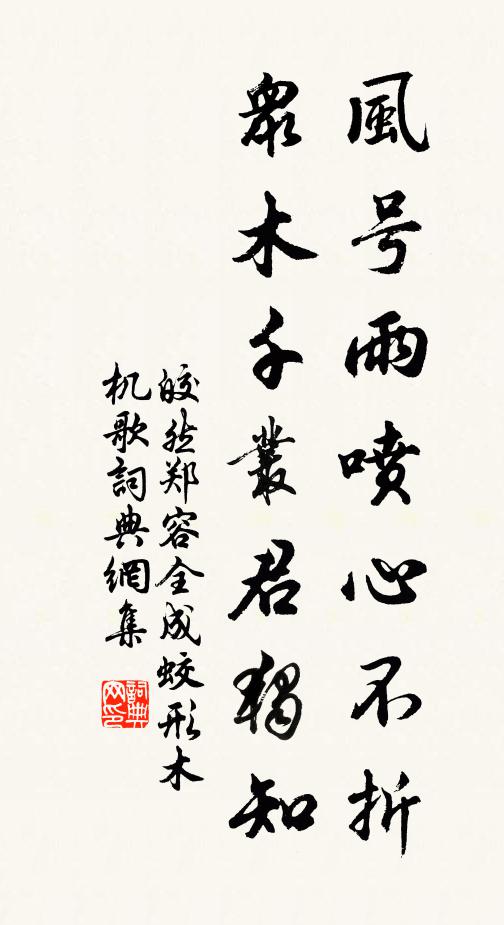 風号雨噴心不折
眾木千叢君獨知
皎然郑容全成蛟形木
机歌詞典網集
詞典网印